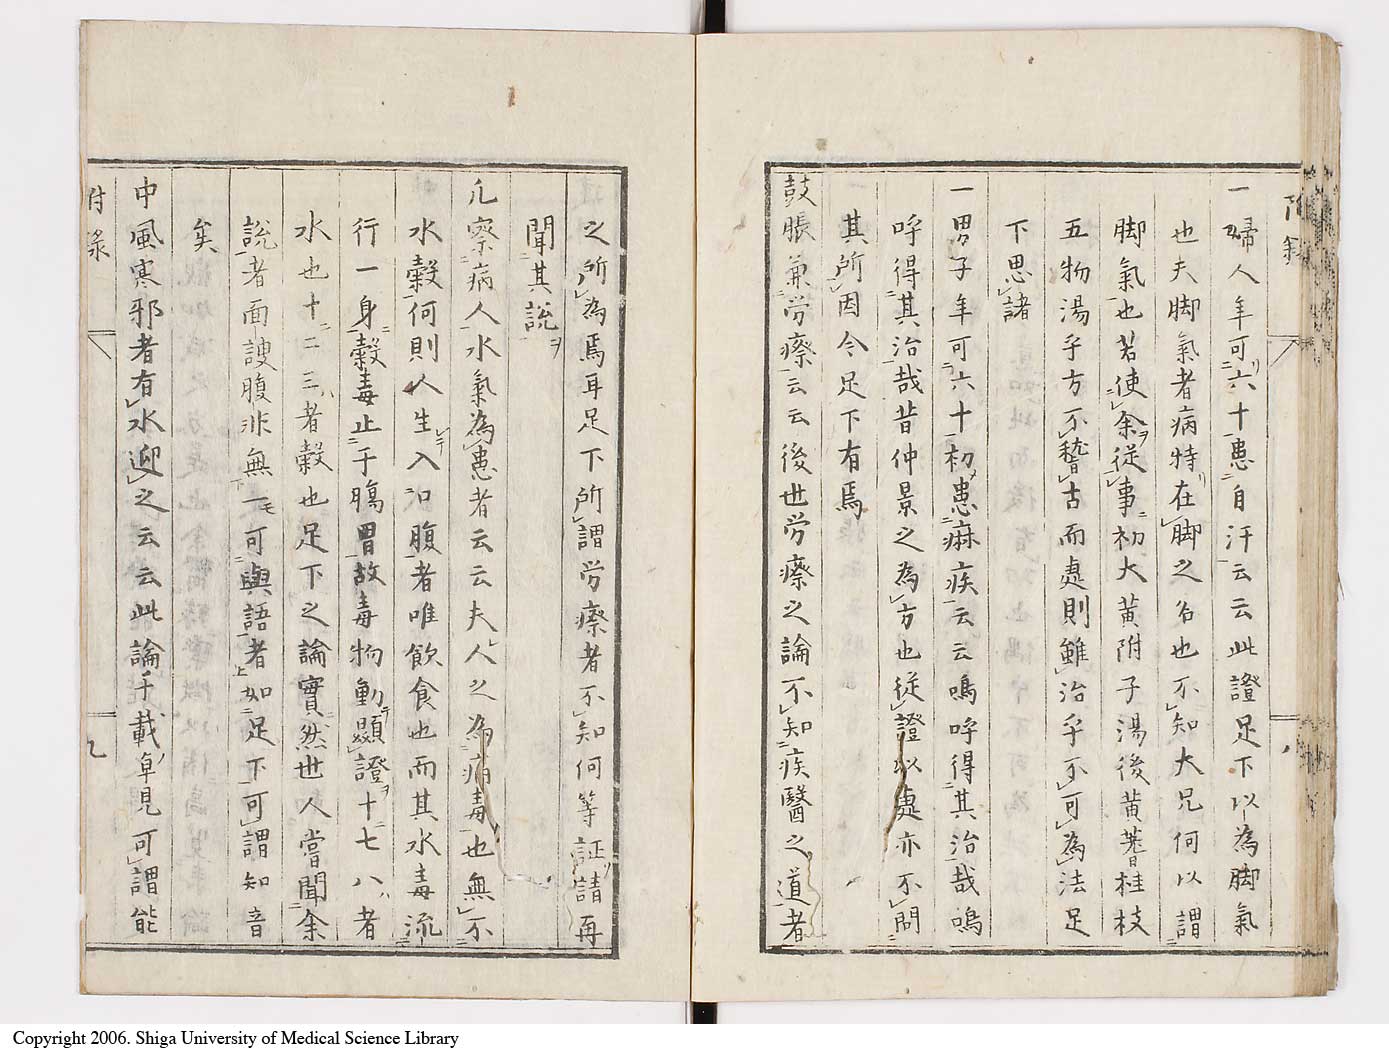 附錄
一婦人年可六十患自汗云云此證足下以為脚氣
也夫脚氣者病特在脚之名也不知大兄何以謂
脚氣也若使余從事初大黄附子湯後黄耆桂枝
五物湯乎方不稽古而處則雖治乎不可為法足
下思諸
一男子年可六十初患麻疾云云嗚呼得其治哉嗚
呼得其治哉昔仲景之為方也従證以處亦不問
其所因今足下有焉
鼓脹兼労瘵云云後世労瘵之論不知疾醫之道者
之所為焉耳足下所謂労瘵者不知何等証請再
聞其説
凢察病人水氣為患者云云夫人之為病毒也無不
水穀何則人生入口腹者唯飲食也而其水毒流
行一身穀毒止于腸胃故毒物動顯證十七八者
水也十二三者穀也足下之論實然也人嘗聞余
説者面諛腹非無一可與語者如足下可謂知音
矣
中風寒邪者有水迎之云云此論千載卓見可謂能
附錄
九
Copyright 2006. Shiga University of Medical Science Library